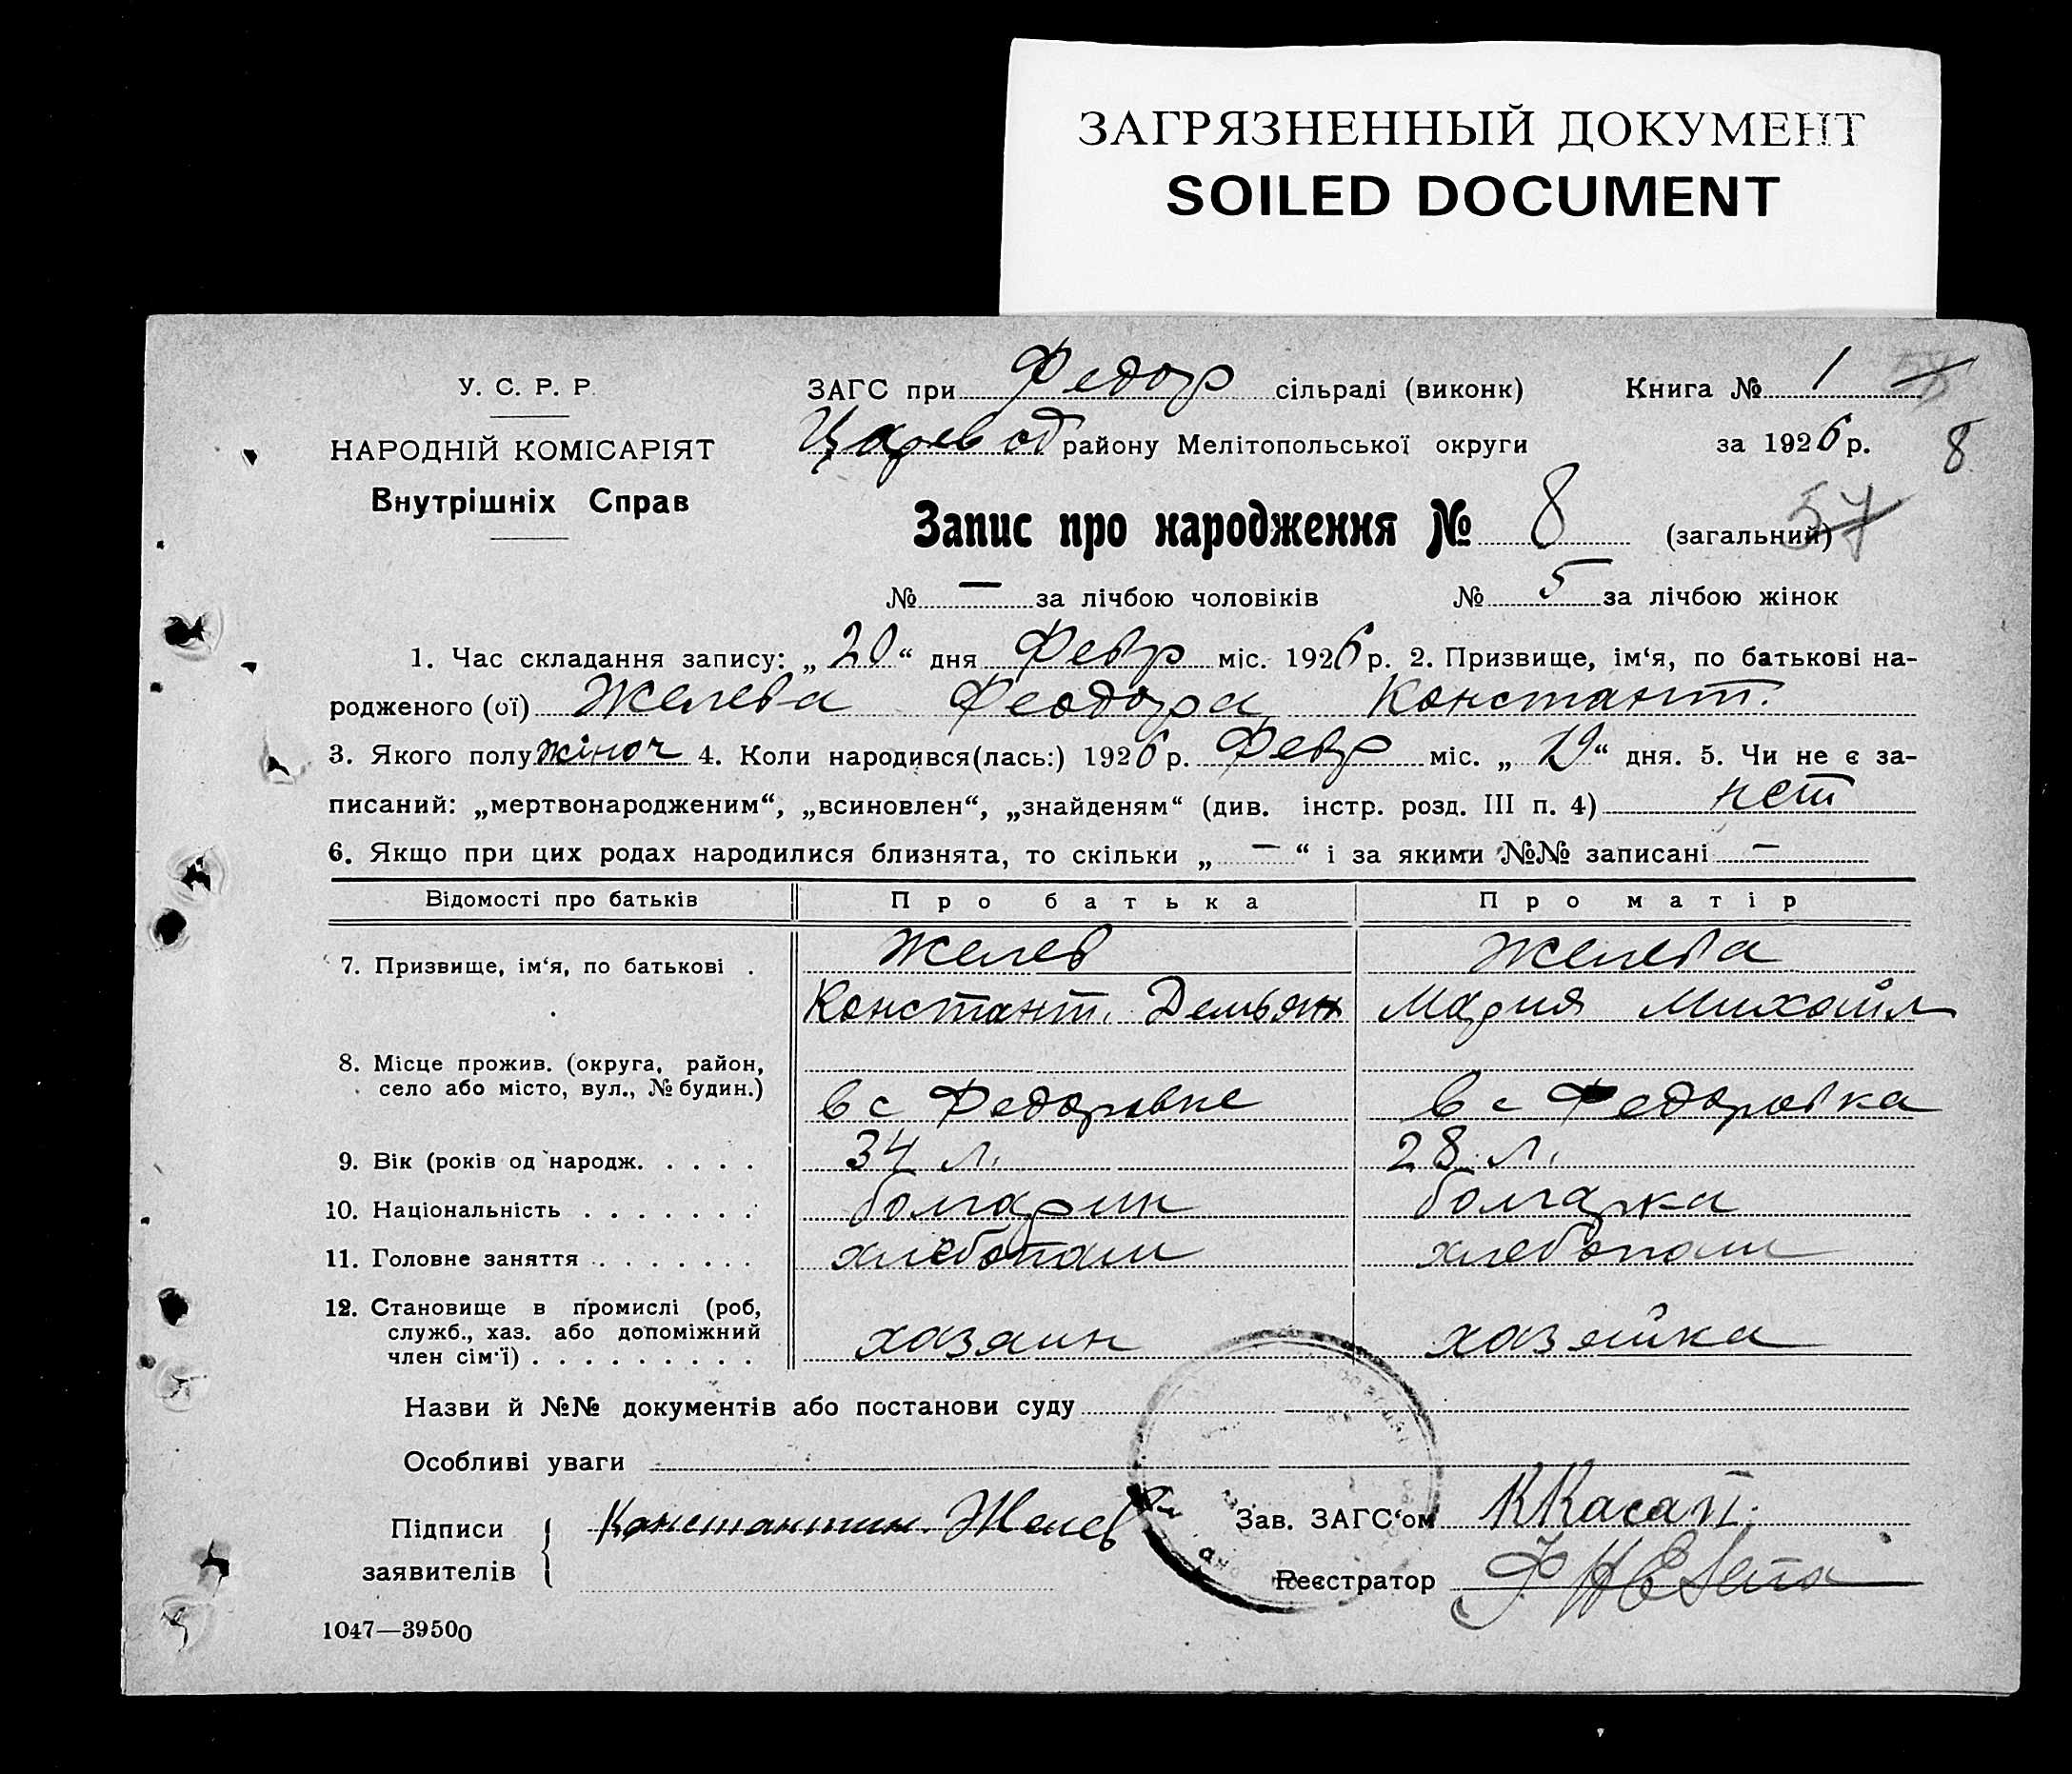 ЗАГРЯЗНЕННЫЙ ДОКУМЕНТ
SOILED DOCUMENT
У. С. Р. Р.
НАРОДНІЙ КОМІСАРІЯТ
Внутрішніх Справ
ЗАГС при Федор сільраді (виконк)
Царевод району Мелітопольської округи
Книга № 1
за 1926 р. 8
Запис про народження № 8 (загальний) 57
№ — за лічбою чоловіків № 5 за лічбою жінок
1. Час складання запису: „20“ дня Февр міс. 1926 р. 2. Призвище, ім‘я, по батькові на-
родженого (ої) Желева Феодора Константт.
3. Якого полу жіноч 4. Коли народився(лась:) 1926 р. Февр міс. „19“ дня. 5. Чи не є за-
писаний: „мертвонародженим“, „всиновлен“, „знайденям“ (див. інстр. розд. III п. 4) нет
6. Якщо при цих родах народилися близнята, то скільки „ — “ і за якими №№ записані —
Відомості про батьків Про батька Про матір
7. Призвище, ім‘я, по батькові . Желев Желева
Константт. Демьян Мария Михайл
8. Місце прожив. (округа, район,
село або місто, вул., № будин.) в с Федоровке в с Федоровка
9. Вік (років од народж. . . . . 34 л. 28 л.
10. Національність . . . . . . . болгарин болгарка
11. Головне заняття . . . . . . . хлебопаш хлебопаш
12. Становище в промислі (роб,
служб., хаз. або допоміжний
член сім‘ї) . . . . . . . . . . хазяин хазяйка
Назви й №№ документів або постанови суду
Особливі уваги
Підписи
заявителів
Константин Желев
Зав. ЗАГС‘ом ККасап.
Реєстратор
1047—39500